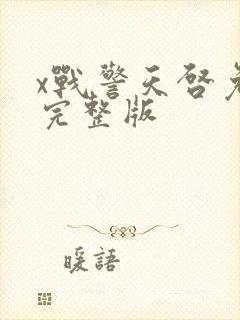 x戰警天啓免
完整版
暖語